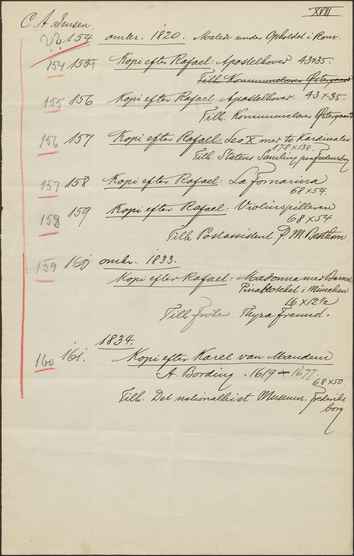 XVII
C A Jensen
154 omkr. 1820. Malet under Opholdet i Rom.
154 155 Kopi efter Rafael Apostelhoved 43x35.
Tilh. Kommunelærer Østergaard
155 156 Kopi efter Rafael Apostelhoved. 43x35.
Tilh. Kommunelærer Østergaard
156 157 Kopi efter Rafaël Leo X med to Kardinaler
178 x 130
Tilh. Statens Samling
157 158 Kopi efter Rafael: La Fornarina
68x54.
158 159 Kopi efter Rafael: Violinspilleren
68x54
Tilh Postassistent P. M.
159 160 omkr. 1833.
Kopi efter Rafael: Madonna med Barnet
Pinakotheket i München
16 x 12½
Tilh Frøken Thyra Freund.
1834.
160 161. Kopi efter Karel van Mandern
A. Bording. 1619-1677.
68x50
Tilh. Det nationalhist Museum. Frederiks
borg